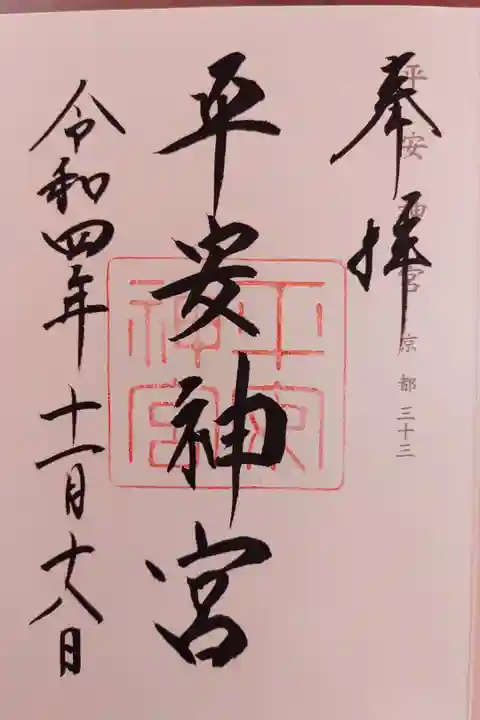 平安神宮 京都 三十三
奉拝
平安神宮
平安神宮
令和四年十一月十八日